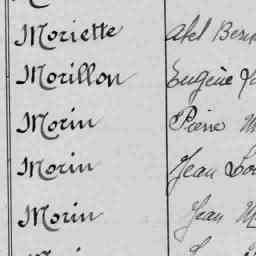 Moriette Abel
Morillon Eugène
Morin Pierre
Morin Jean
Morin Jean